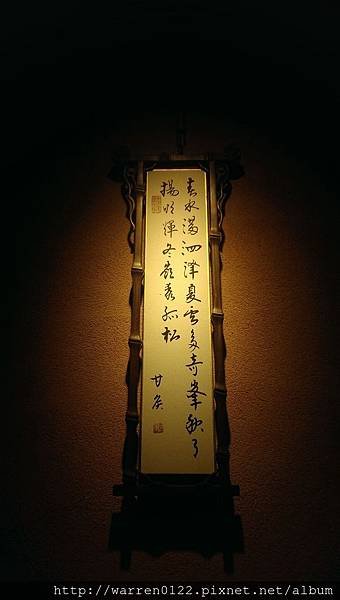 春水滿泗澤夏雲多奇峯秋月
揚明輝冬嶺秀孤松
甘侯
http://warren0122.pixnet.net/album